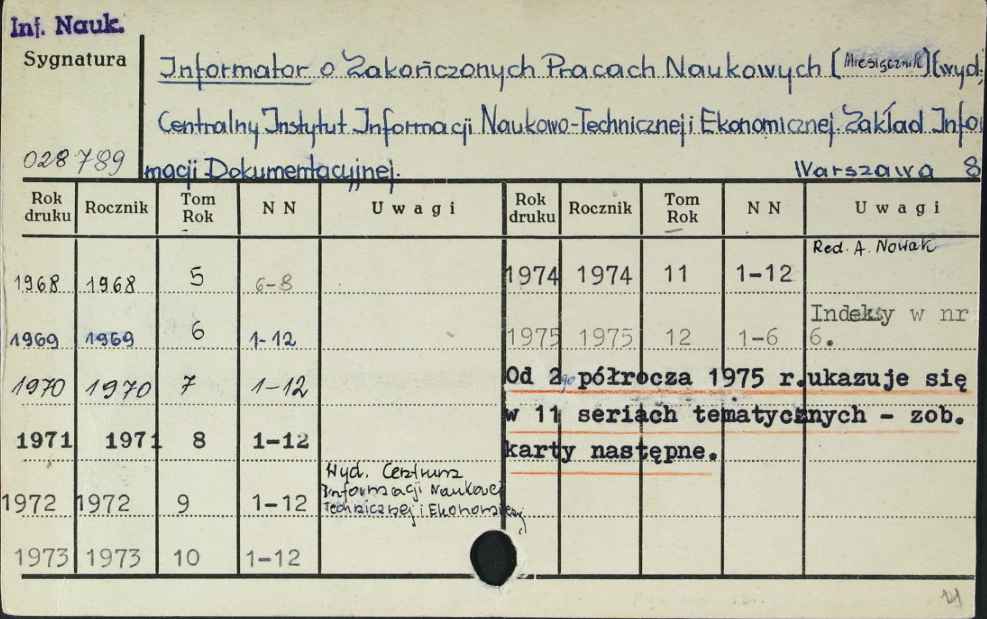 Inf. Nauk.
Sygnatura
Informator o Zakończonych Pracach Naukowych (Miesięcznik) (wyd.
Centralny Instytut Informacji Naukowo-Technicznej i Ekonomicznej. Zakład Infor
028789 macji Dokumentacyjnej. Warszawa 8
Rok druku Rocznik Tom Rok NN Uwagi Rok druku Rocznik Tom Rok NN Uwagi
Red. A. Nowak
1968 1968 5 6-8 1974 1974 11 1-12
Indeksy w nr
1969 1969 6 1-12 1975 1975 12 1-6 6.
1970 1970 7 1-12 Od 2go półrocza 1975 r. ukazuje się
1971 1971 8 1-12 w 11 seriach tematycznych - zob.
karty następne.
Wyd. Centrum
Informacji Naukowej
1972 1972 9 1-12 Technicznej i Ekonomicznej
1973 1973 10 1-12